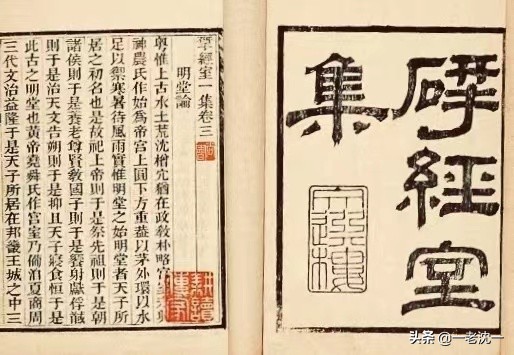 揅經室
集
文選樓
揅經室一集卷三
明堂論
粵惟上古水土荒沈橧穴猶在政教朴略宮室未興
神農氏作始爲帝宮上圓下方重蓋以茅外環以水
足以禦寒暑待風雨實惟明堂之始明堂者天子所
居之初名也是故祀上帝則于是祭先祖則于是朝
諸侯則于是養老尊賢教國子則于是饗射獻俘馘
則于是治天文告朔則于是抑且天子寢食恆于是
此古之明堂也黃帝堯舜氏作宮室乃備洎夏商周
三代文治益隆于是天子所居在邦畿王城之中三
耕讀傳家
头条 @一老沈一